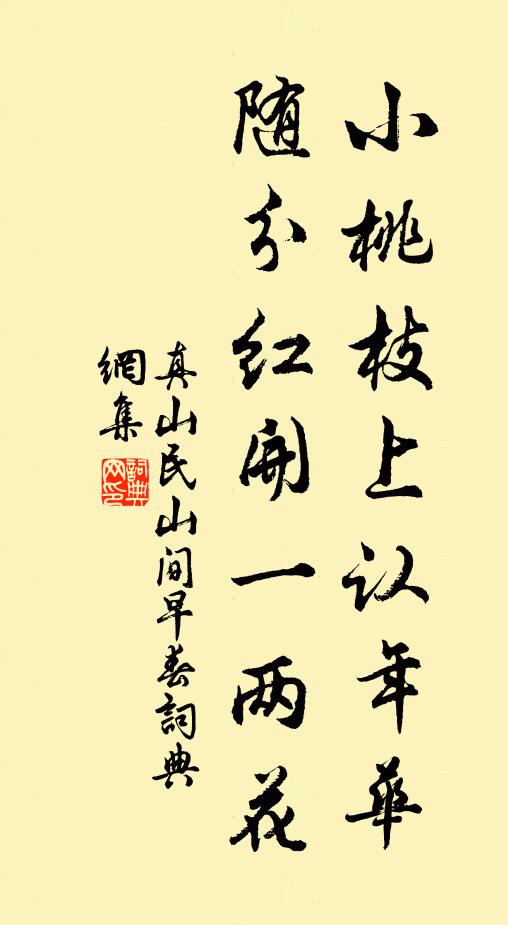 小桃枝上认年華
随分红開一两花
真山民山间早春詞典
網集
詞典网印